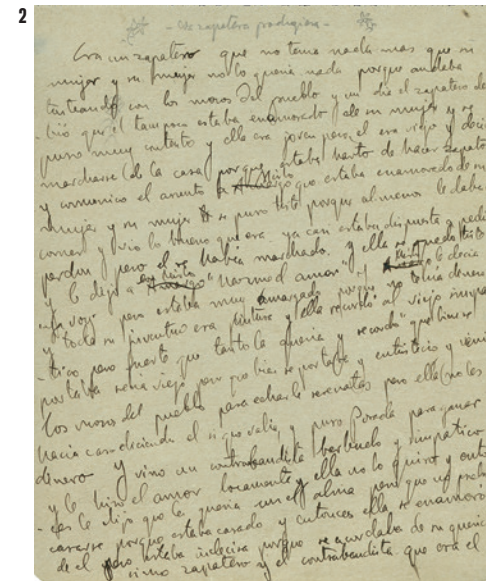 2
zapatera prodigiosa
Era un zapatero que no tenia nada mas que su
mujer y su mujer no lo queria nada porque andaba
tonteando con los mozos del pueblo y un dia el zapatero de
-cidió que él tampoco estaba enamorado de su mujer y se
puso muy contento y ella era joven pero el era viejo y deci
marcharse de la casa porque estaba harto de hacer zapatos
y comunico el asunto a que estaba enamorado de su
mujer y su mujer se puso triste porque al menos le daba
comer y vio lo bueno que era ya casi estaba dispuesta a pedir
perdon pero el se habia marchado. y ella se quedo triste
y le dijo a amor y le decia
pero estaba muy amargado porque no tenia dinero
y toda su juventud era y ella recordó al viejo simpa
-tico pero fuerte que tanto la queria y recordó que
portaba seria viejo pero que bien se portaba y entristecio y
los mozos del pueblo para echarle serenatas pero ella no les
hacia caso diciendo él si que valia, y puso Posada para ganar
dinero y vino un contrabandista barbudo y simpático
y le hizo el amor locamente y ella no lo quiso y
-ces le dijo que la queria un el alma pero que no
casarse porque estaba casado y entonces ella se enamoró
de el pero estaba indecisa porque se acordaba de su
simo zapatero y el contrabandista que era el